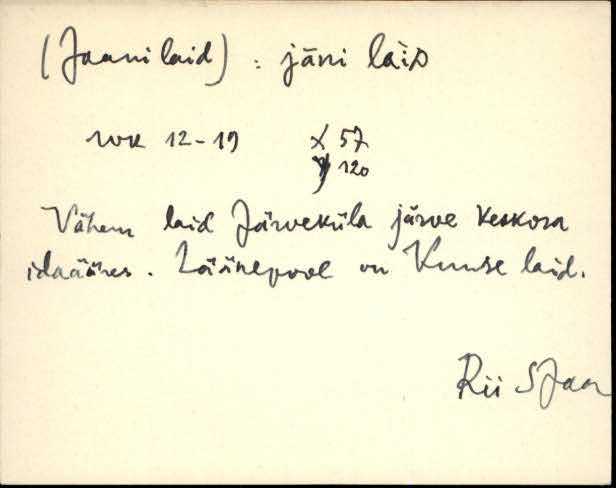 (Jaani laid) : jāni laiD
WK 12-19 X 57
y 120
Vähem laid Järveküla järve keskosa
idaääres. Läänepool on Kuuse laid.
Rii SJaa